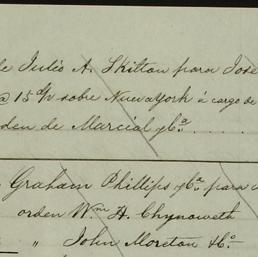 de Julio A. Skilton para José
@ 15 d/v sobre Nueva York á cargo de
orden de Marcial y Ca. . . . .
Graham Phillips y Ca. para
orden Wm H. Chynoweth
" John Moreton & Co.